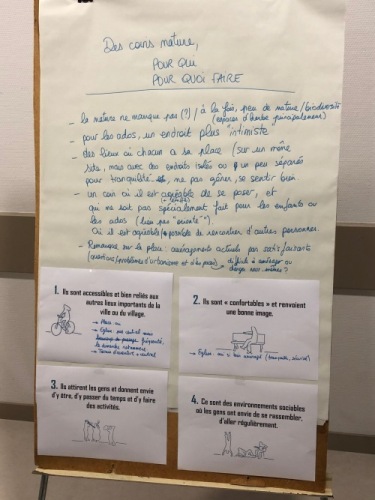 Des coins nature,
POUR QUI
POUR QUOI FAIRE
- la nature ne manque pas (?) / à la fois, peu de nature/biodiversité
(espaces d'herbe principalement)
- pour les ados, un endroit plus "intimiste"
- des lieux où chacun a sa place (sur un même
site, mais avec des endroits isolés ou un peu séparés
pour tranquillité... ne pas gêner, se sentir bien
- un coin où il est agréable de se poser, et
qui ne soit pas spécialement fait pour les enfants ou
les ados (lieu pas "orienté")
où il est agréable possible de rencontrer d'autres personnes
- Remarque sur la place : aménagements actuels pas satisfaisants
(questions/problèmes d'urbanisme et d'... → difficile à aménager ou
charge nous-mêmes ?
1. Ils sont accessibles et bien reliés aux
autres lieux importants de la
ville ou du village.
→ Place
→ Eglise : pas central mais
beaucoup de passage
→ central
2. Ils sont « confortables » et renvoient
une bonne image.
→ Eglise : oui si bien aménagé
3. Ils attirent les gens et donnent envie
d'y être, d'y passer du temps et d'y faire
des activités.
4. Ce sont des environnements sociables
où les gens ont envie de se rassembler,
d'aller régulièrement.